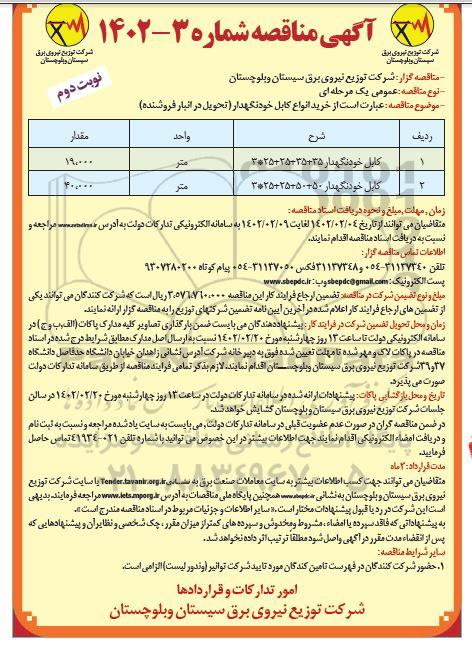 آگهی مناقصه شماره ۳-۱۴۰۲
شرکت توزیع نیروی برق
سیستان وبلوچستان
شرکت توزیع نیروی برق
سیستان وبلوچستان
نوبت دوم
-مناقصه گزار: شرکت توزیع نیروی برق سیستان وبلوچستان
-نوع مناقصه: عمومی یک مرحله ای
-موضوع مناقصه: عبارت است از خرید انواع کابل خودنگهدار (تحویل در انبار فروشنده)
ردیف شرح واحد مقدار
۱ کابل خودنگهدار ۳۵+۳۵+۲۵+۲۵*۳ متر ۱۹،۰۰۰
۲ کابل خودنگهدار ۵۰+۵۰+۲۵+۲۵*۳ متر ۴۰،۰۰۰
زمان، مهلت، مبلغ و نحوه دریافت اسناد مناقصه:
متقاضیان می توانند از تاریخ ۱۴۰۲/۰۲/۰۴ لغایت ۱۴۰۲/۰۲/۰۹ به سامانه الکترونیکی تدارکات دولت به آدرس www.setadiran.ir مراجعه و
نسبت به دریافت اسناد مناقصه اقدام نمایند.
اطلاعات تماس مناقصه گزار:
تلفن ۳۱۱۳۷۳۴۰-۰۵۴ و ۳۱۱۳۷۳۴۸ فکس ۳۱۱۳۷۰۵۰-۰۵۴ پیام کوتاه ۹۳۰۷۲۸۰۲۰۰
پست الکترونیک: sbepdc@gmail.com وب: www.sbepdc.ir
مبلغ و نوع تضمین شرکت در مناقصه: تضمین ارجاع فرایند کار این مناقصه ۳،۵۷۶،۷۶۰،۰۰۰ ریال است که شرکت کنندگان می توانند یکی
از تضمین های ارجاع فرایند کار اعلام شده در آخرین آیین نامه تضمین شرکتهای توزیع را به مناقصه گزار ارائه نمایند.
زمان و محل تحویل تضمین شرکت در فرایند کار: پیشنهاددهندگان می بایست ضمن بارگذاری تصاویر کلیه مدارک پاکات (الف،ب و ج) در
سامانه الکترونیکی دولت تا ساعت ۱۳ روز چهارشنبه مورخ ۱۴۰۲/۰۲/۲۰ نسبت به ارسال اصل مدارک مطابق شرایط درج شده در اسناد
مناقصه در پاکات لاک و مهر شده تا مهلت تعیین شده فوق به دبیرخانه شرکت آدرس نشانی زاهدان خیابان دانشگاه حدفاصل دانشگاه
۳۷ و ۳۹ شرکت توزیع نیروی برق سیستان وبلوچستان اقدام نمایند. لازم بذکر تمامی فرایند مناقصه از طریق سامانه تدارکات دولت
صورت می پذیرد.
تاریخ و محل بازگشایی پاکات: پیشنهادات ارائه شده در سامانه تدارکات دولت در ساعت ۱۳ روز چهارشنبه مورخ ۱۴۰۲/۰۲/۲۰ در سالن
جلسات شرکت توزیع نیروی برق سیستان وبلوچستان گشایش خواهد شد.
در ضمن مناقصه گران در صورت عدم عضویت قبلی در سامانه تدارکات دولت، می بایست به سایت یاد شده مراجعه و نسبت به ثبت نام
و دریافت امضاء الکترونیکی اقدام نمایند جهت اطلاعات بیشتر در این خصوص می توانید با شماره تلفن ۴۱۹۳۴-۰۲۱ تماس حاصل
فرمایید.
مدت قرارداد: ۲ ماه
متقاضیان می توانند جهت کسب اطلاعات بیشتر به سایت معاملات صنعت برق به نشانی Tender.tavanir.org.ir یا سایت شرکت توزیع
نیروی برق سیستان وبلوچستان به نشانی www.sbepdc.ir همچنین پایگاه ملی مناقصات به آدرس www.iets.mporg.ir مراجعه فرمایند. بدیهی
است این شرکت در رد یا قبول پیشنهادات مختار است. «سایر اطلاعات و جزئیات مربوط در اسناد مناقصه مندرج است».
به پیشنهاداتی که فاقد سپرده یا امضاء، مشروط و مخدوش و سپرده های کمتر از میزان مقرر، چک شخصی و نظایر آن و پیشنهادهایی که
پس از انقضاء مدت مقرر در آگهی واصل شود مطلقاً ترتیب اثر داده نخواهد شد.
سایر شرایط مناقصه:
۱. حضور شرکت کنندگان در فهرست تامین کنندگان مورد تایید شرکت توانیر (وندور لیست) الزامی است.
امور تدارکات و قراردادها
شرکت توزیع نیروی برق سیستان وبلوچستان